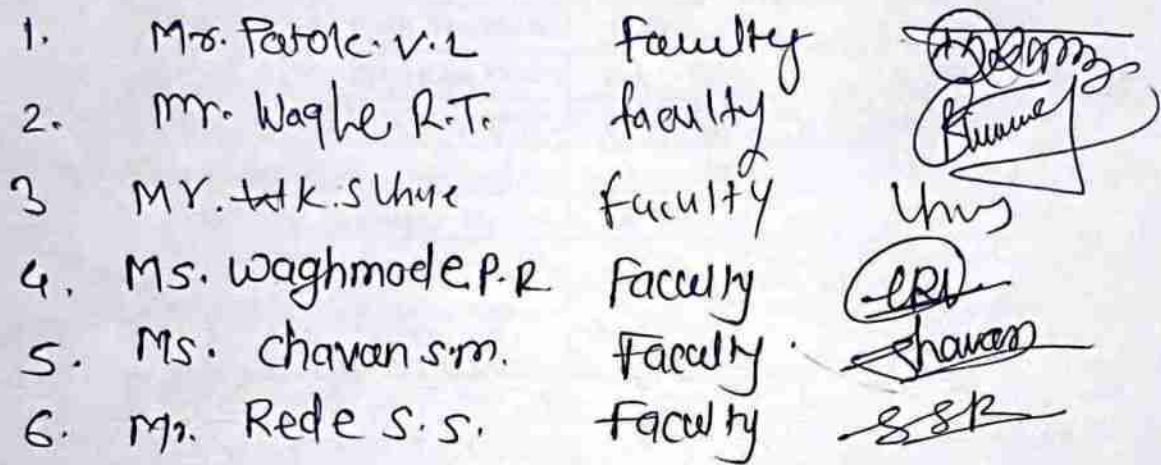 1. Mr. Patole. V. L Faculty
2. Mr. Waghe R.T. faculty
3 MR. K.S Uhye faculty
4. Ms. Waghmode P.R Faculty
5. Ms. Chavan s.m. Faculty. Chavan
6. Mr. Rede S.S. Faculty SSR